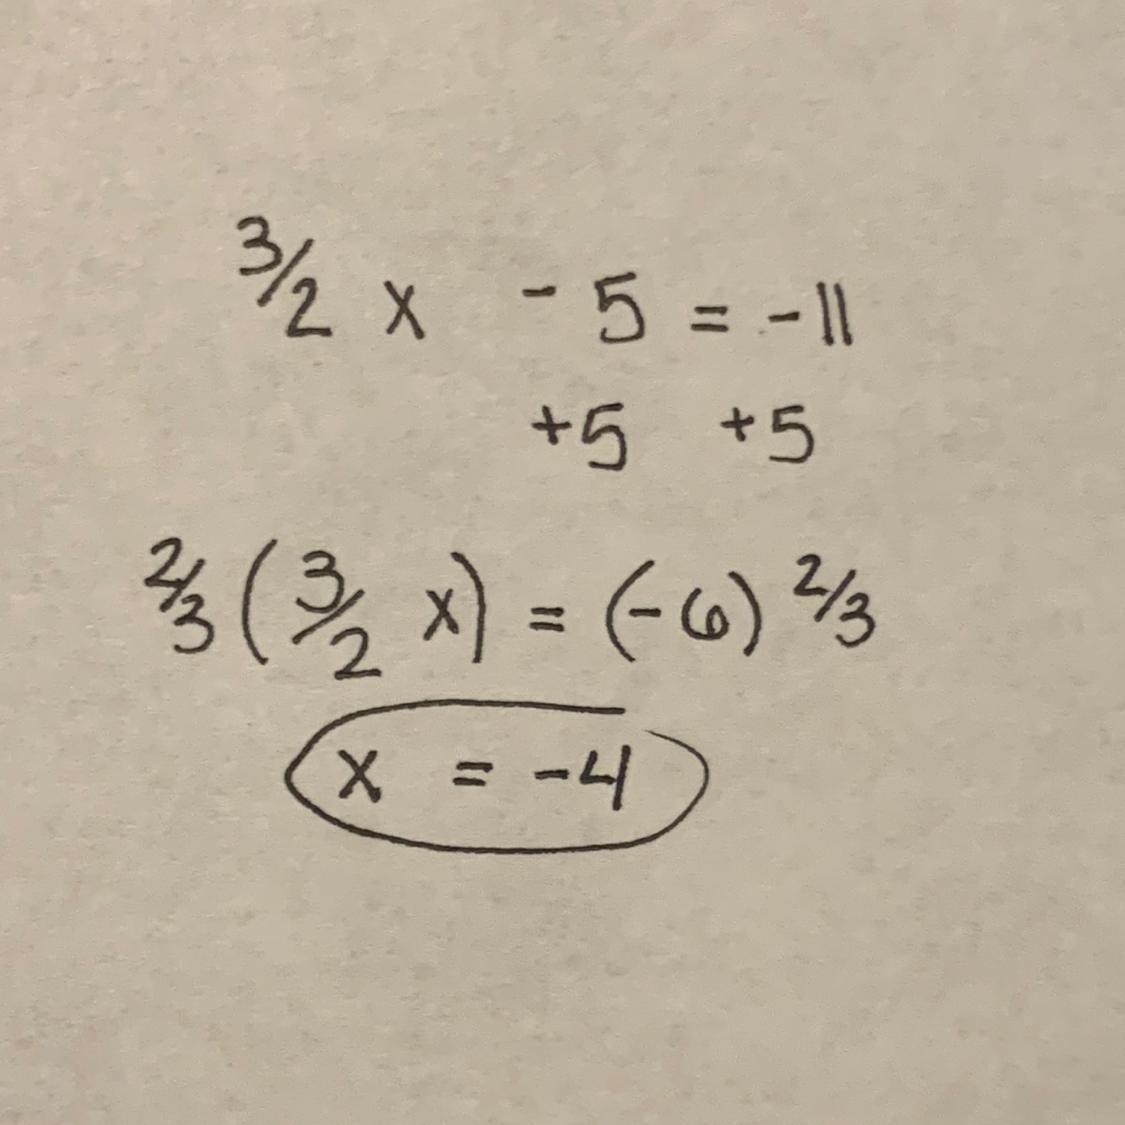 3/2 x - 5 = -11
+5 +5
2/3 (3/2 x) = (-6) 2/3
x = -4